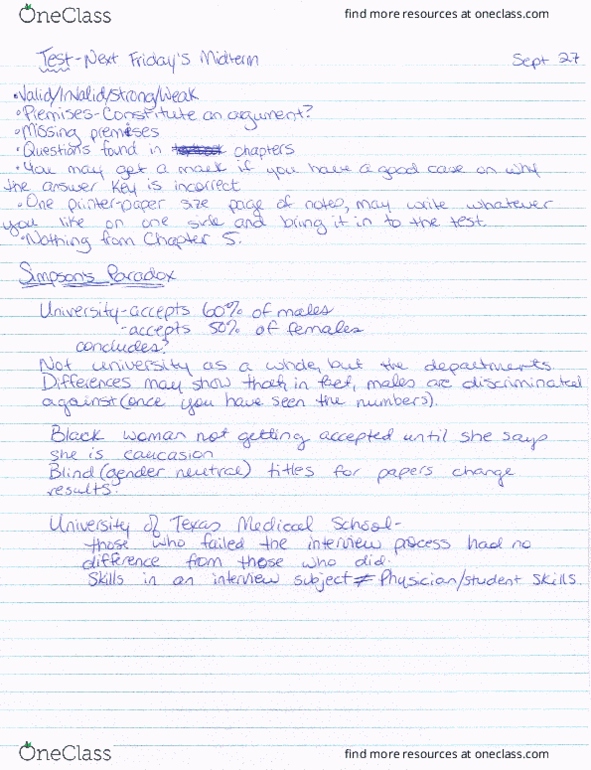 OneClass find more resources at oneclass.com
Test-Next Friday's Midterm Sept 27
•Valid/Invalid/Strong/Weak
•Premises-Constitute an argument?
•Missing premises
•Questions found in chapters
•You may get a mark if you have a good case on why
the answer key is incorrect
•One printer-paper size page of notes, may write whatever
you like on one side and bring it in to the test.
•Nothing from Chapter 5.
Simpson's Paradox
University-accepts 60% of males
-accepts 50% of females
concludes?
Not university as a whole, but the departments.
Differences may show that, in fact, males are discriminated
against (once you have seen the numbers).
Black woman not getting accepted until she says
she is caucasion
Blind (gender neutral) titles for papers change
results.
University of Texas Medical School-
those who failed the interview process had no
difference from those who did.
Skills in an interview subject ≠ Physician/student skills.
OneClass find more resources at oneclass.com